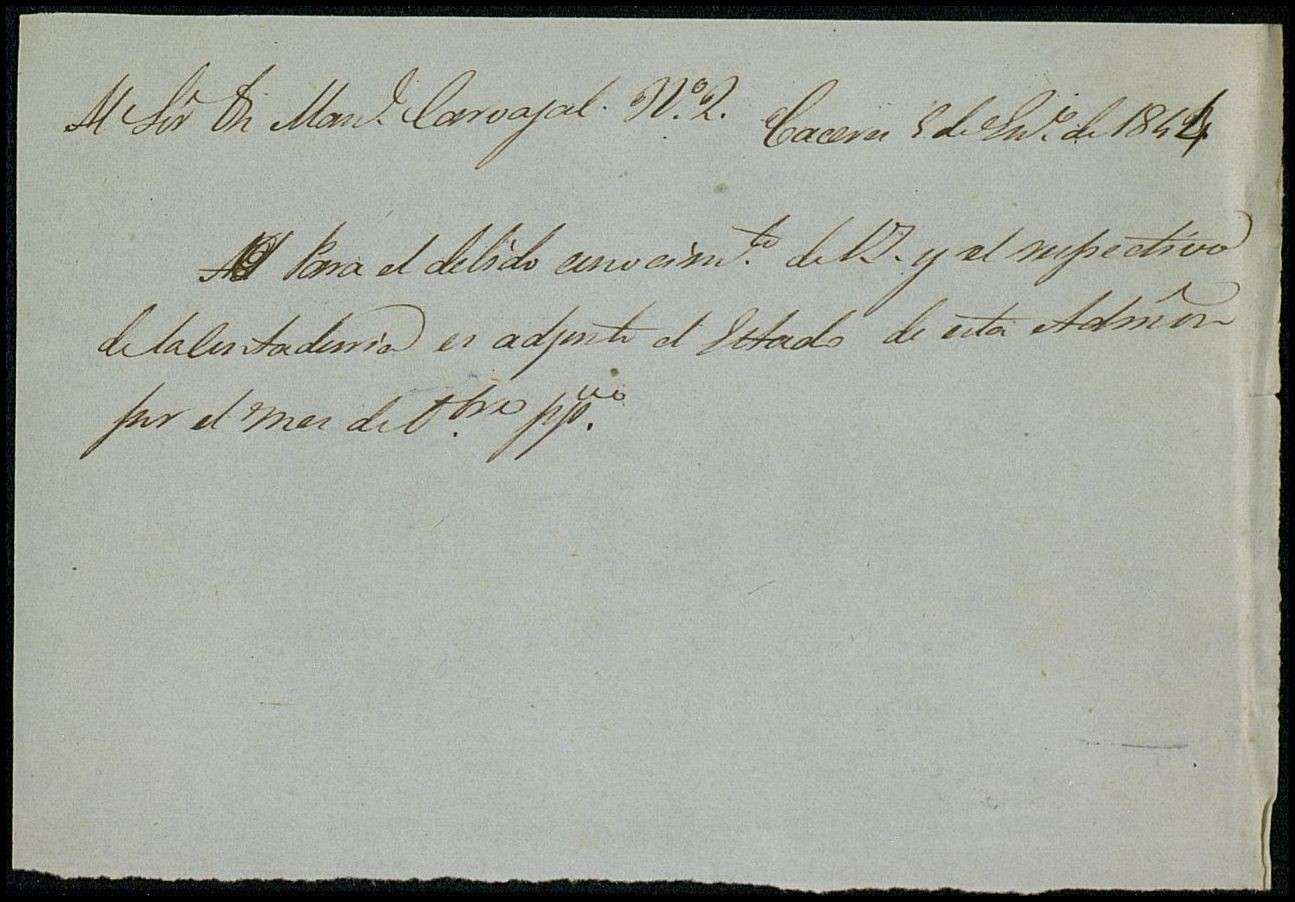 Al Sör Dn Manl. Carvajal. Nº. 2. Caceres 5 de Enº. de 1844
Para el debido conocimto. de V. y el respectivo
de la Contaduria es adjunto el Estado de esta Admön
por el mes de bre ppdo.